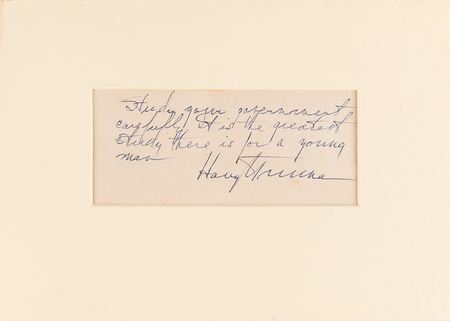 Study your government
carefully. It is the greatest
study there is for a young
man
Harry Truman